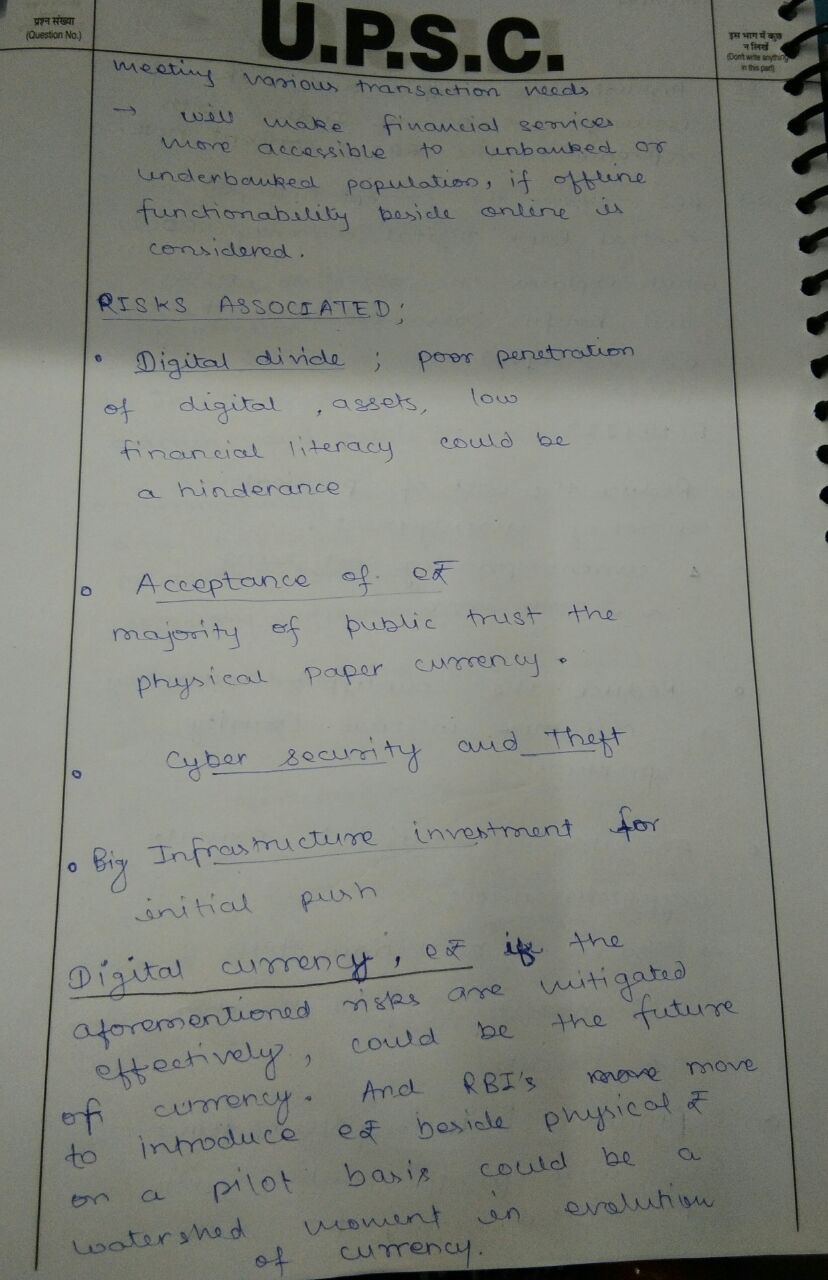 प्रश्न संख्या
(Question No.)
U.P.S.C.
इस भाग में कुछ
न लिखें
(Don't write anything
in this part)
meeting various transaction needs
→ will make financial services
more accessible to unbanked or
underbanked population, if offline
functionability beside online is
considered.
RISKS ASSOCIATED;
• Digital divide ; poor penetration
of digital , assets, low
financial literacy could be
a hinderance
• Acceptance of e₹
majority of public trust the
physical paper currency.
• Cyber security and Theft
• Big Infrastructure investment for
initial push
Digital currency, e₹ if the
aforementioned risks are mitigated
effectively, could be the future
of currency. And RBI's move move
to introduce e₹ beside physical ₹
on a pilot basis could be a
watershed moment in evolution
of currency.